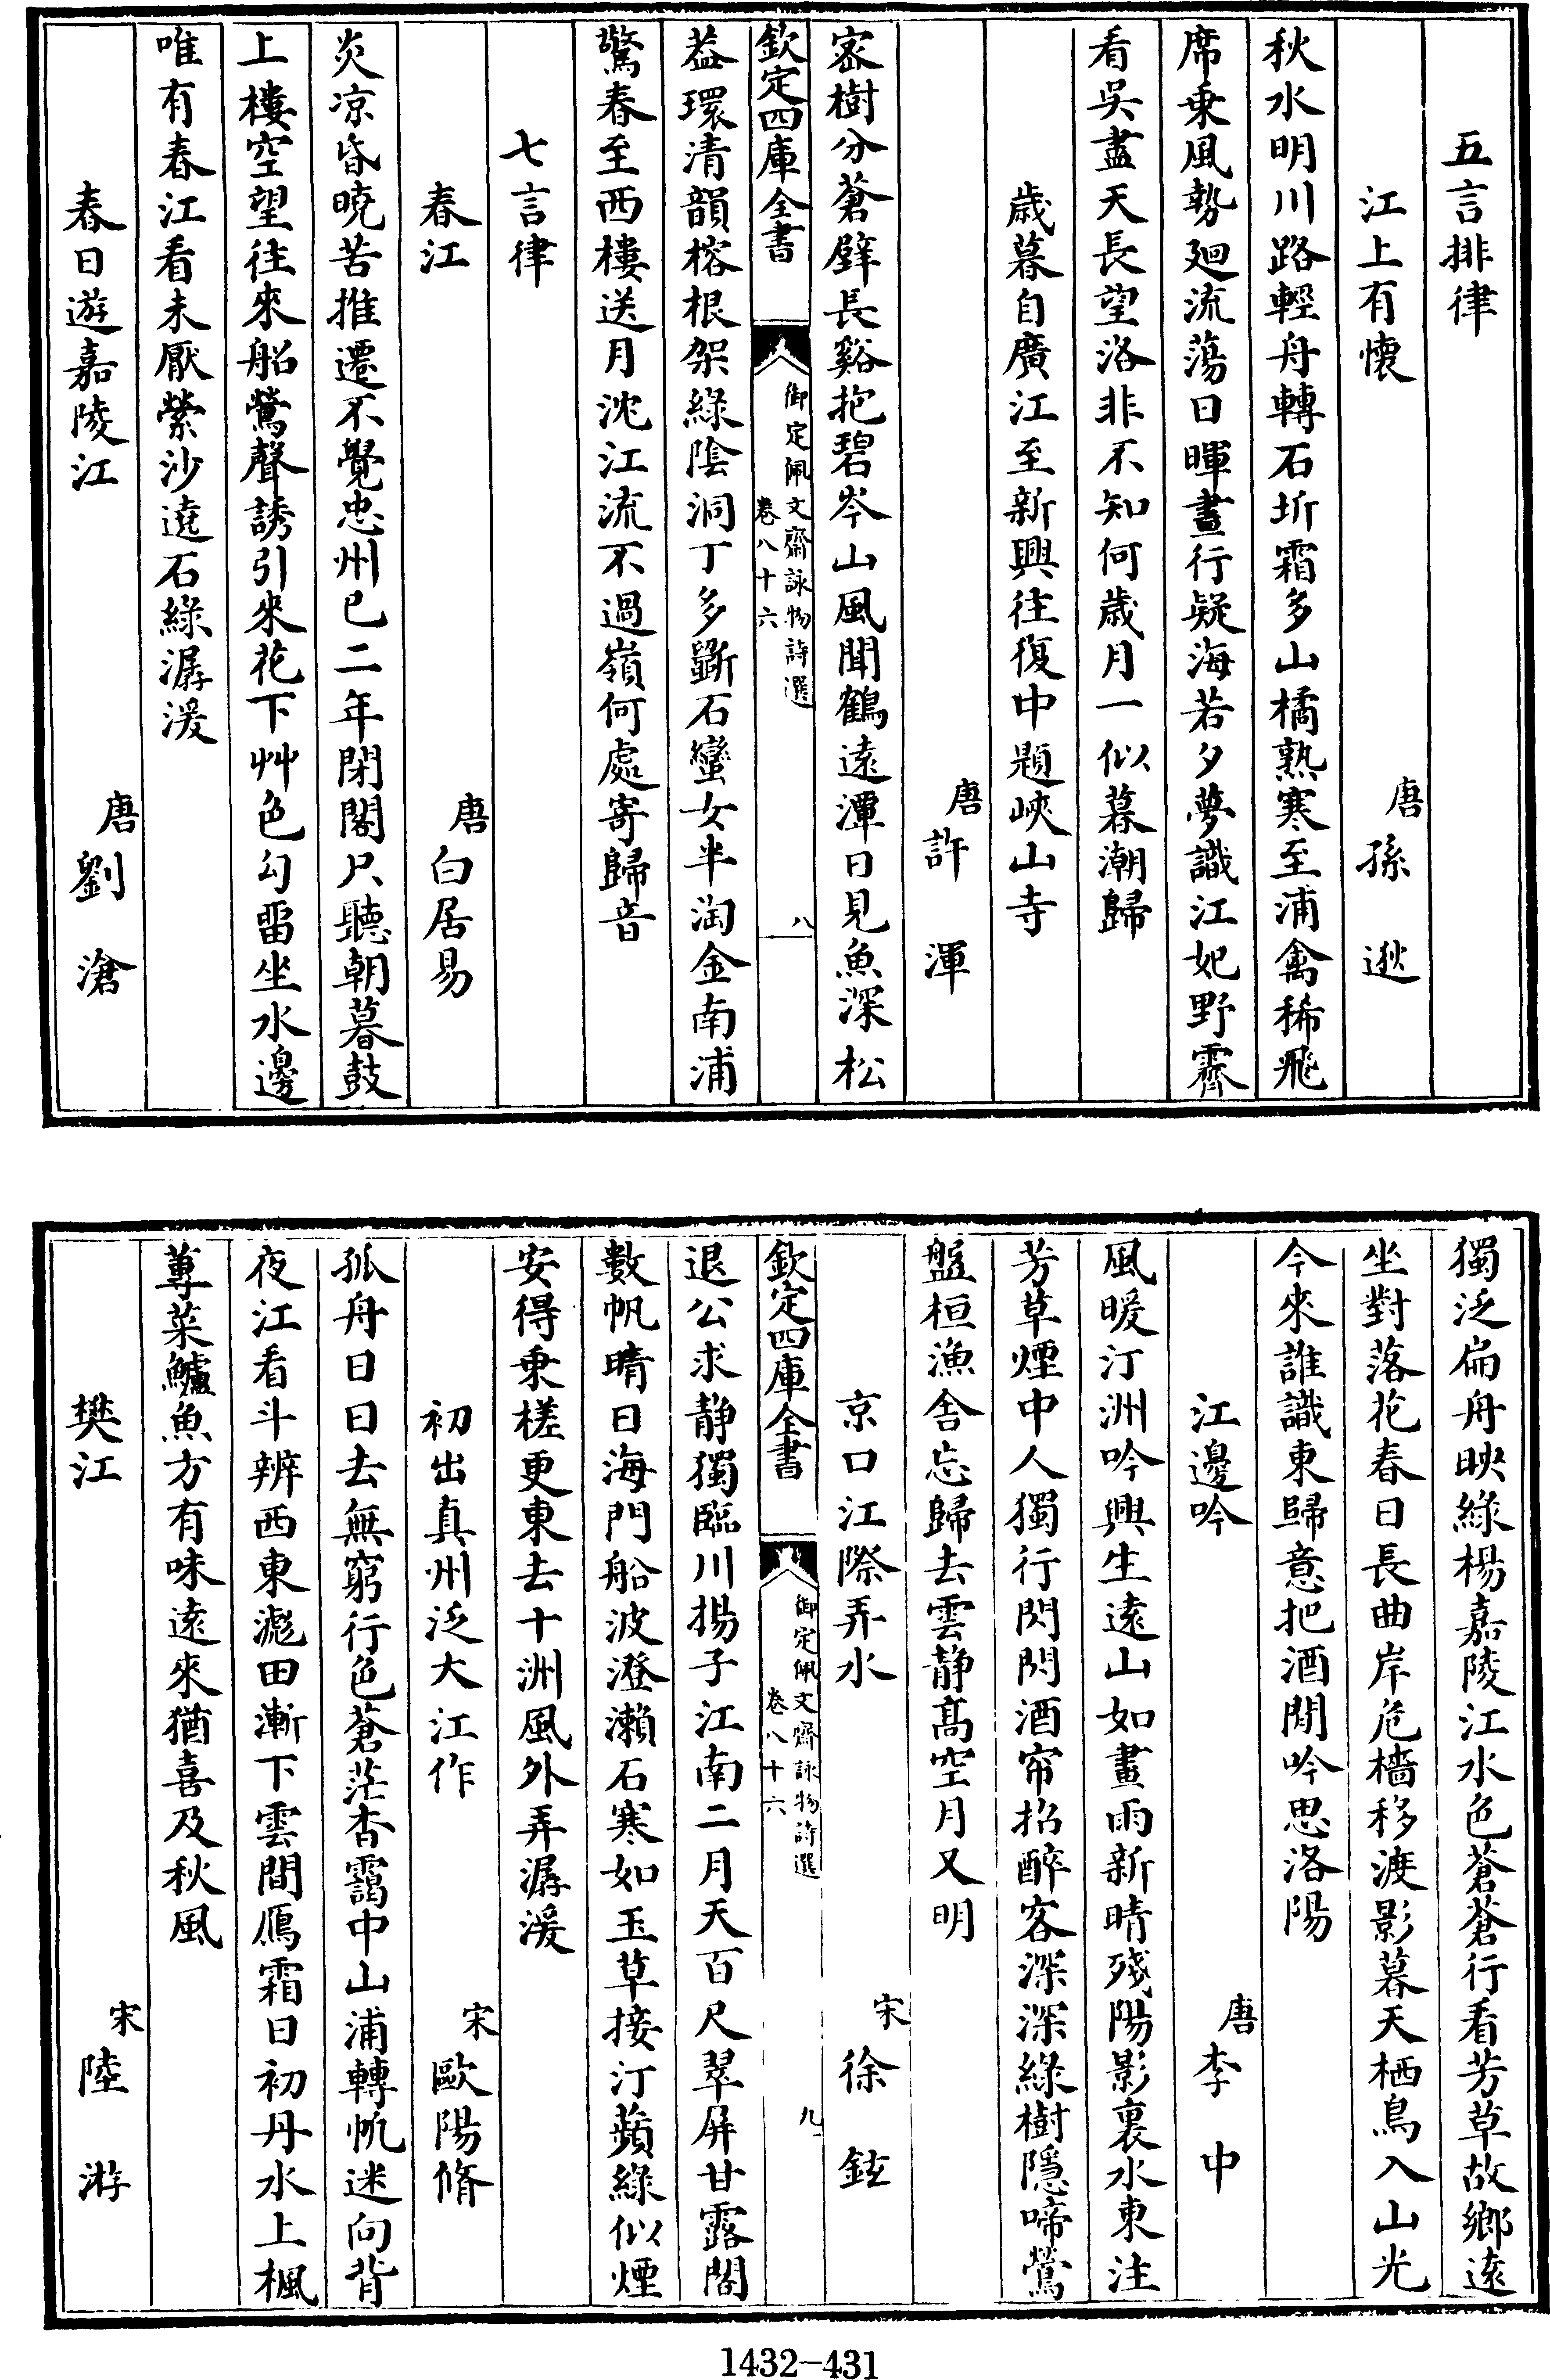 五言排律
江上有懷　唐孫逖
秋水明川路輕舟轉石圻霜多山橘熟寒至浦禽稀飛
席乗風勢廻流蕩日暉晝行疑海若夕夢識江妃野霽
看吳盡天長望洛非不知何歳月一似暮潮歸
歳暮自廣江至新興往復中題峽山寺
唐許渾
宻樹分蒼壁長谿抱碧岑山風聞鶴遠潭日見魚深松
欽定四庫全書
御定佩文齋詠物詩選
卷八十六
八
葢環清韻榕根架綠陰洞丁多斵石蠻女半淘金南浦
驚春至西樓送月沈江流不過嶺何處寄歸音
七言律
春江　唐白居易
炎凉昏曉苦推遷不覺忠州已二年閉閣只聽朝暮鼓
上樓空望往來船鶯聲誘引來花下艸色勾留坐水邊
唯有春江看未厭縈沙遶石綠潺湲
春日遊嘉陵江　唐劉滄
獨泛扁舟映綠楊嘉陵江水色蒼蒼行看芳草故鄉遠
坐對落花春日長曲岸危檣移渡影暮天栖鳥入山光
今來誰識東歸意把酒閒吟思洛陽
江邊吟　唐李中
風暖汀洲吟興生遠山如畫雨新晴殘陽影裏水東注
芳草煙中人獨行閃閃酒帘招醉客深深綠樹隱啼鶯
盤桓漁舍忘歸去雲静髙空月又明
京口江際弄水　宋徐鉉
欽定四庫全書
御定佩文齋詠物詩選
卷八十六
九
退公求静獨臨川揚子江南二月天百尺翠屏甘露閣
數帆晴日海門船波澄瀨石寒如玉草接汀蘋綠似煙
安得乗槎更東去十洲風外弄潺湲
初出真州泛大江作　宋歐陽脩
孤舟日日去無窮行色蒼茫杳靄中山浦轉帆迷向背
夜江看斗辨西東滮田漸下雲間鴈霜日初丹水上楓
蓴菜鱸魚方有味遠來猶喜及秋風
樊江　宋陸游
1432-431